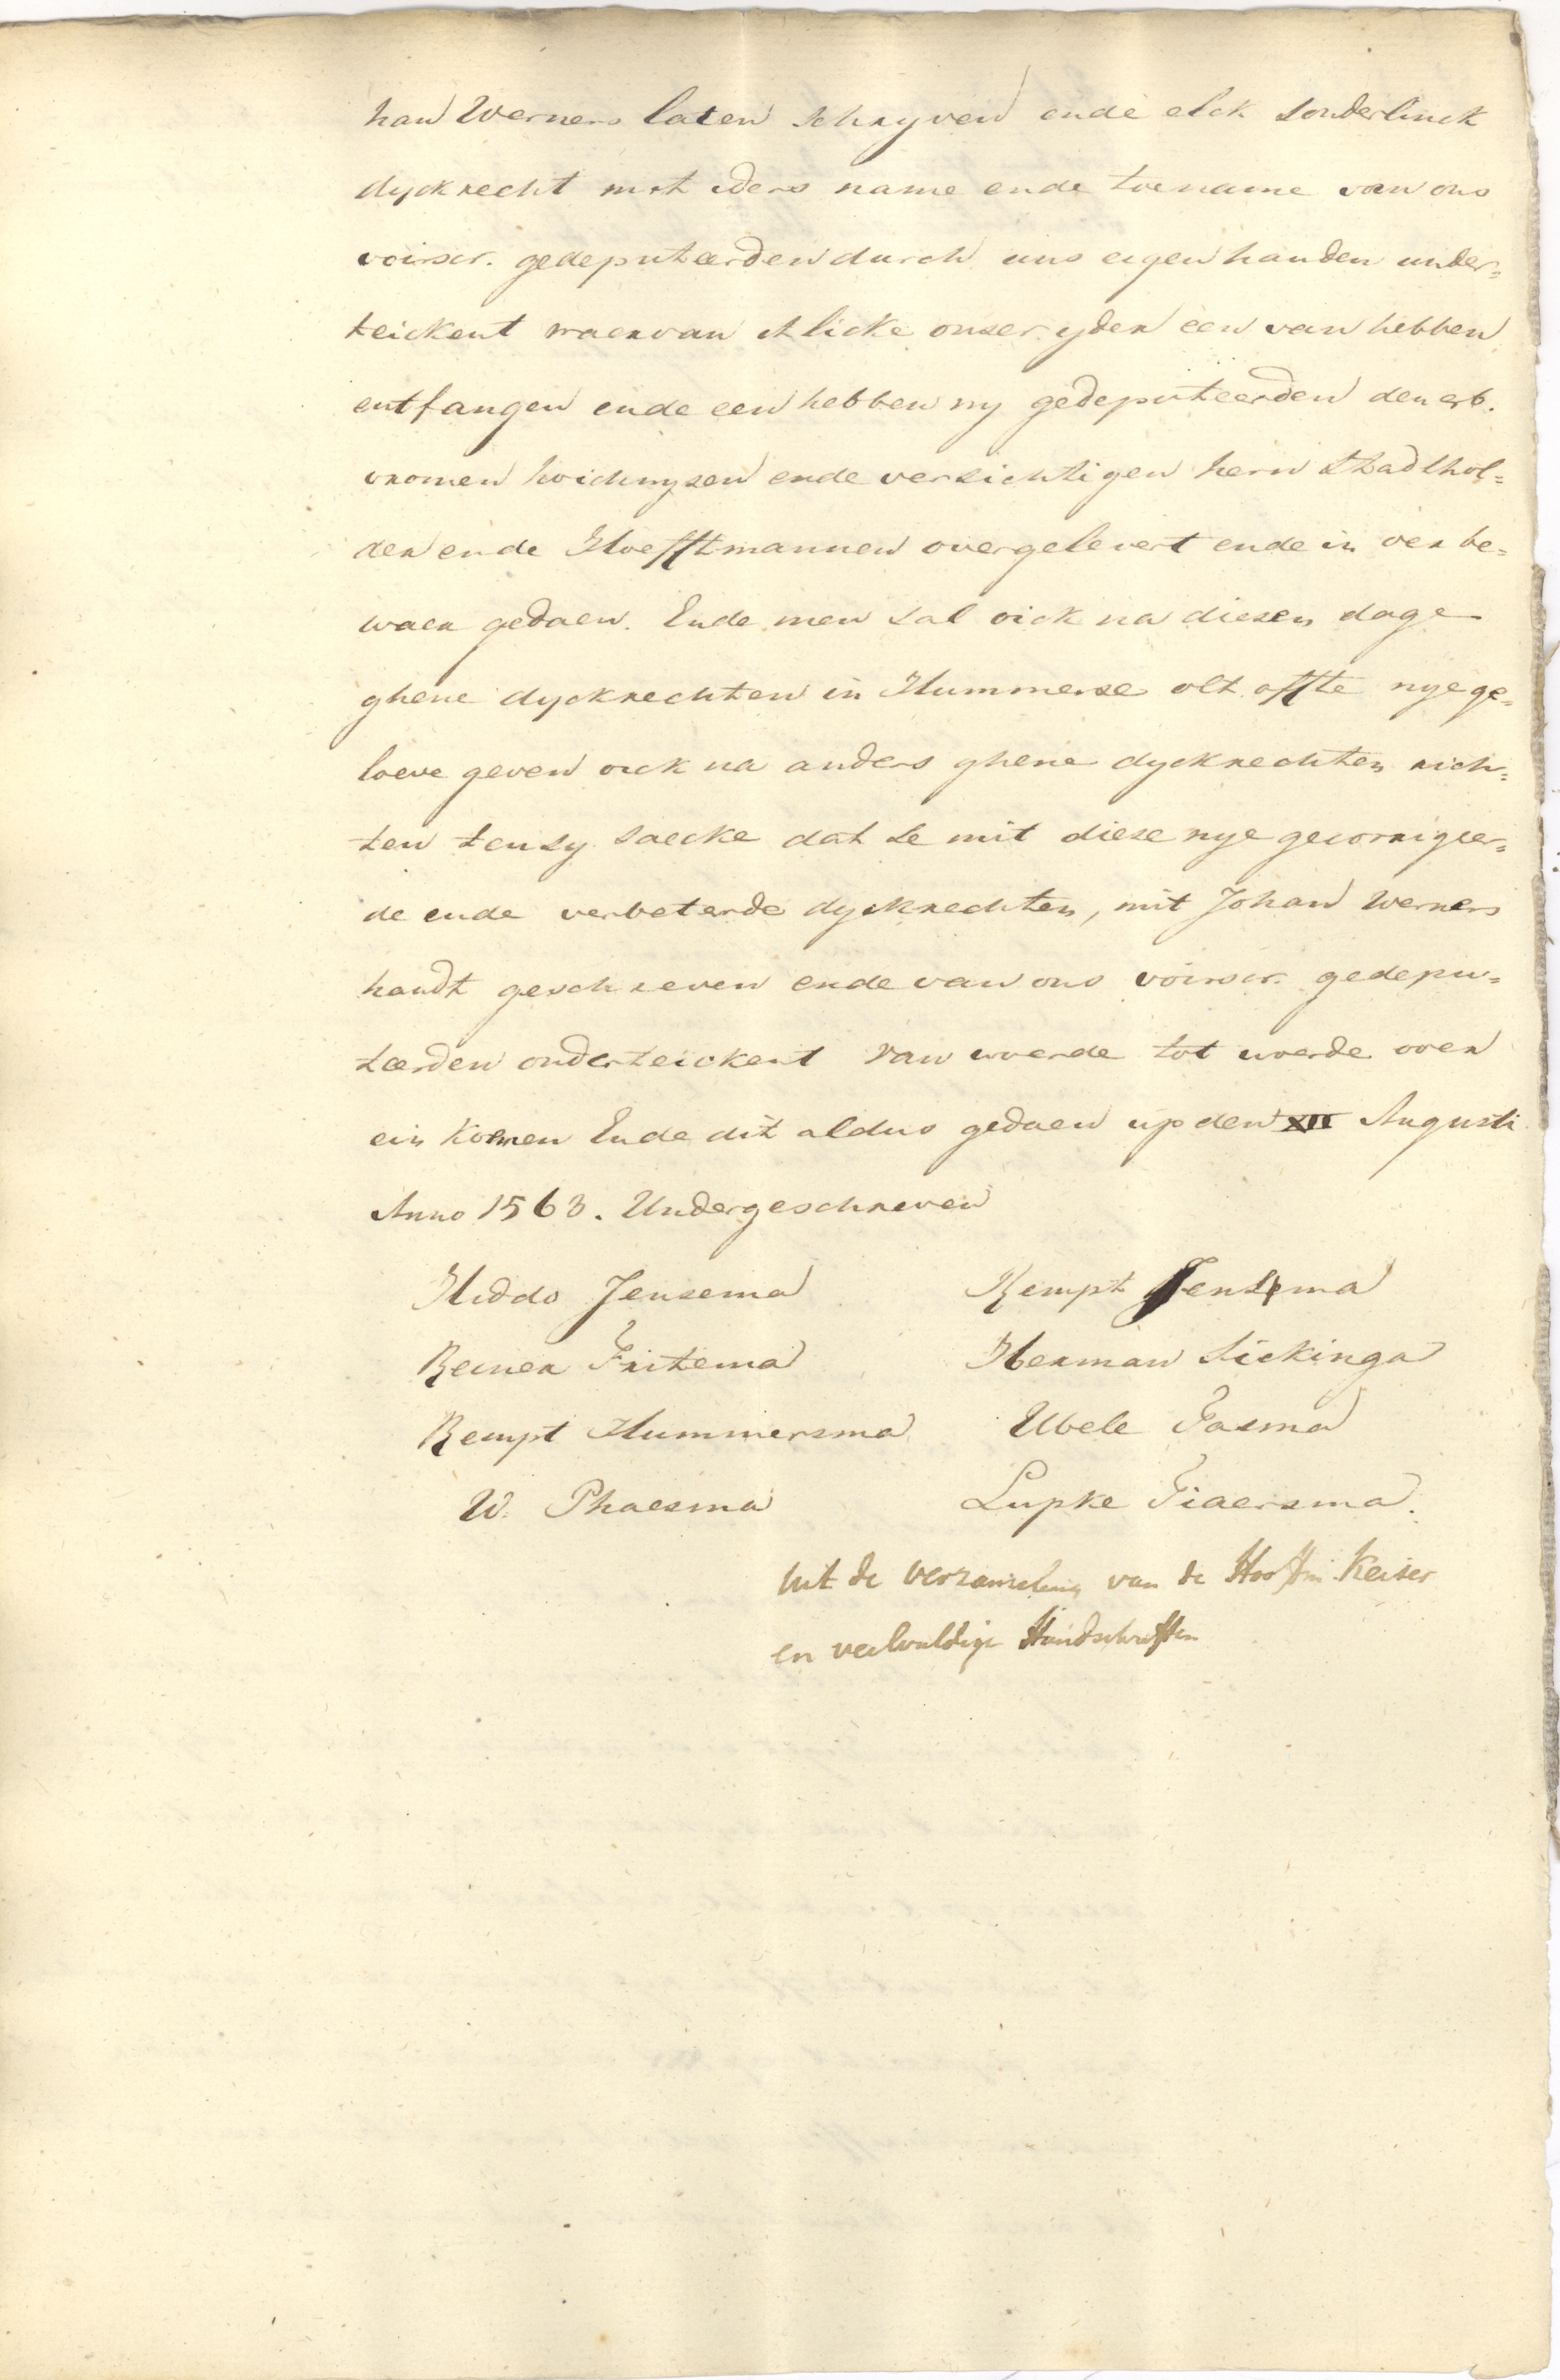 han Werners laten schryven ende elck sonderlinck
dyckrecht mit iders name ende toename van ons
voirscr. gedeputeerden durch uns eigen handen under=
teickent waervan etlicke onser yder een van hebben
entfangen ende een hebben wy gedeputeerden den erb.
vromen hoichwysen ende versichtigen hern Stadthol=
der ende Hoefftmannen overgelevert ende in oer be=
waer gedaen. Ende men sal oick na diesen dage
ghene dyckrechten in Hummerse olt offte nye ge=
loeve geven oick na anders ghene dyckrechten rich=
ten ten sy saecke dat se mit diese nye gecorrigier=
de ende verbeterde dyckrechten, mit Johan Werners
handt geschreven ende van ons voirscr. gedepu=
teerden onderteickent van woerde tot woerde over
ein komen Ende dit aldus gedaen up den XII Augusti
Anno 1563. Undergeschreven
Hiddo Jensema Rempt Jensema
Reiner Fritema Herman Sickinga
Rempt Hummersma Ubele Fasma
W. Phaesma Lupke Tiaersma.
Uit de verzameling van de Hooftm. Keiser
en veelvuldige Handschriften